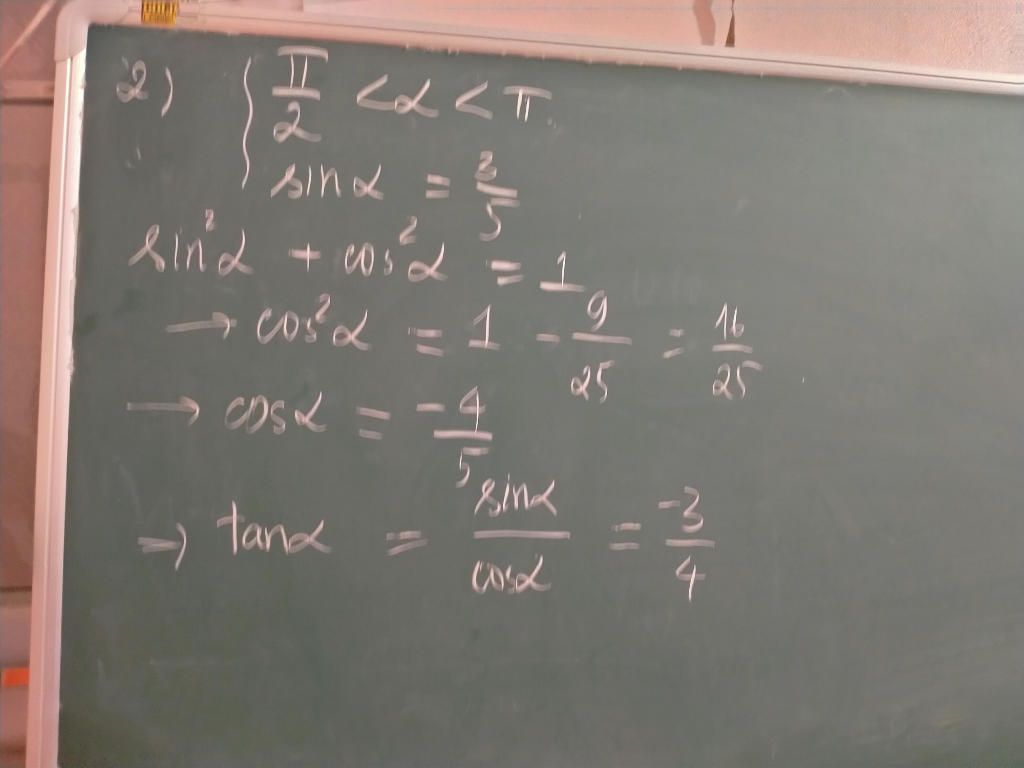 2) { π/2 < α < π.
sin α = 3/5
sin² α + cos² α = 1
→ cos² α = 1 - 9/25 = 16/25
→ cos α = -4/5
→ tan α = sin α/cos α = -3/4